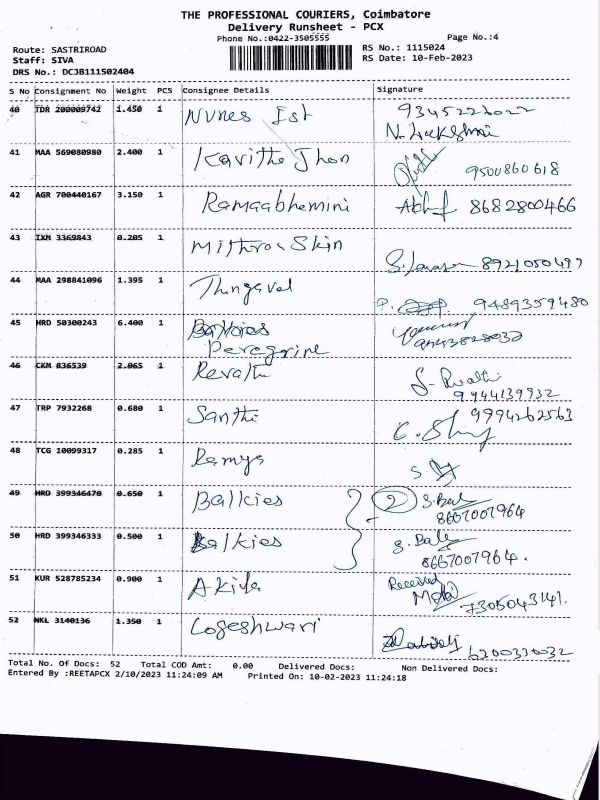 THE PROFESSIONAL COURIERS, Coimbatore
Delivery Runsheet - PCX
Phone No.:0422-3505555
Page No.:4
Route: SASTRIROAD
RS No.: 1115024
Staff: SIVA
RS Date: 10-Feb-2023
DRS No.: DCJB111502404
S No Consignment No Weight PCS Consignee Details Signature
40 TDR 200009742 1.450 1 Nvnes Est 9345221022
41 MAA 569080980 2.400 1 Kavitha Jhon 9500860618
42 AGR 700440167 3.150 1 Ramaabhemini 8682800466
43 IXM 3369843 0.205 1 Mithroa Skin 8921050497
44 MAA 298841096 1.395 1 Thingavel P. 9489359480
45 HRD 50300243 6.400 1 Balkies
Peregrine
46 CKM 836539 2.065 1 Revathi
9944139932
47 TRP 7932268 0.680 1 Santhi 9994262563
48 TCG 10099317 0.285 1 Ramya S
49 HRD 399346470 0.650 1 Balkies 2 S. Bal
8667007964
50 HRD 399346333 0.500 1 Balkies S. Bal
8667007964.
51 KUR 528785234 0.900 1 Akila Received
7305043141.
52 NKL 3140136 1.350 1 Logeshwari
6200330032
Total No. Of Docs: 52 Total COD Amt: 0.00 Delivered Docs: Non Delivered Docs:
Entered By :REETAPCX 2/10/2023 11:24:09 AM Printed On: 10-02-2023 11:24:18